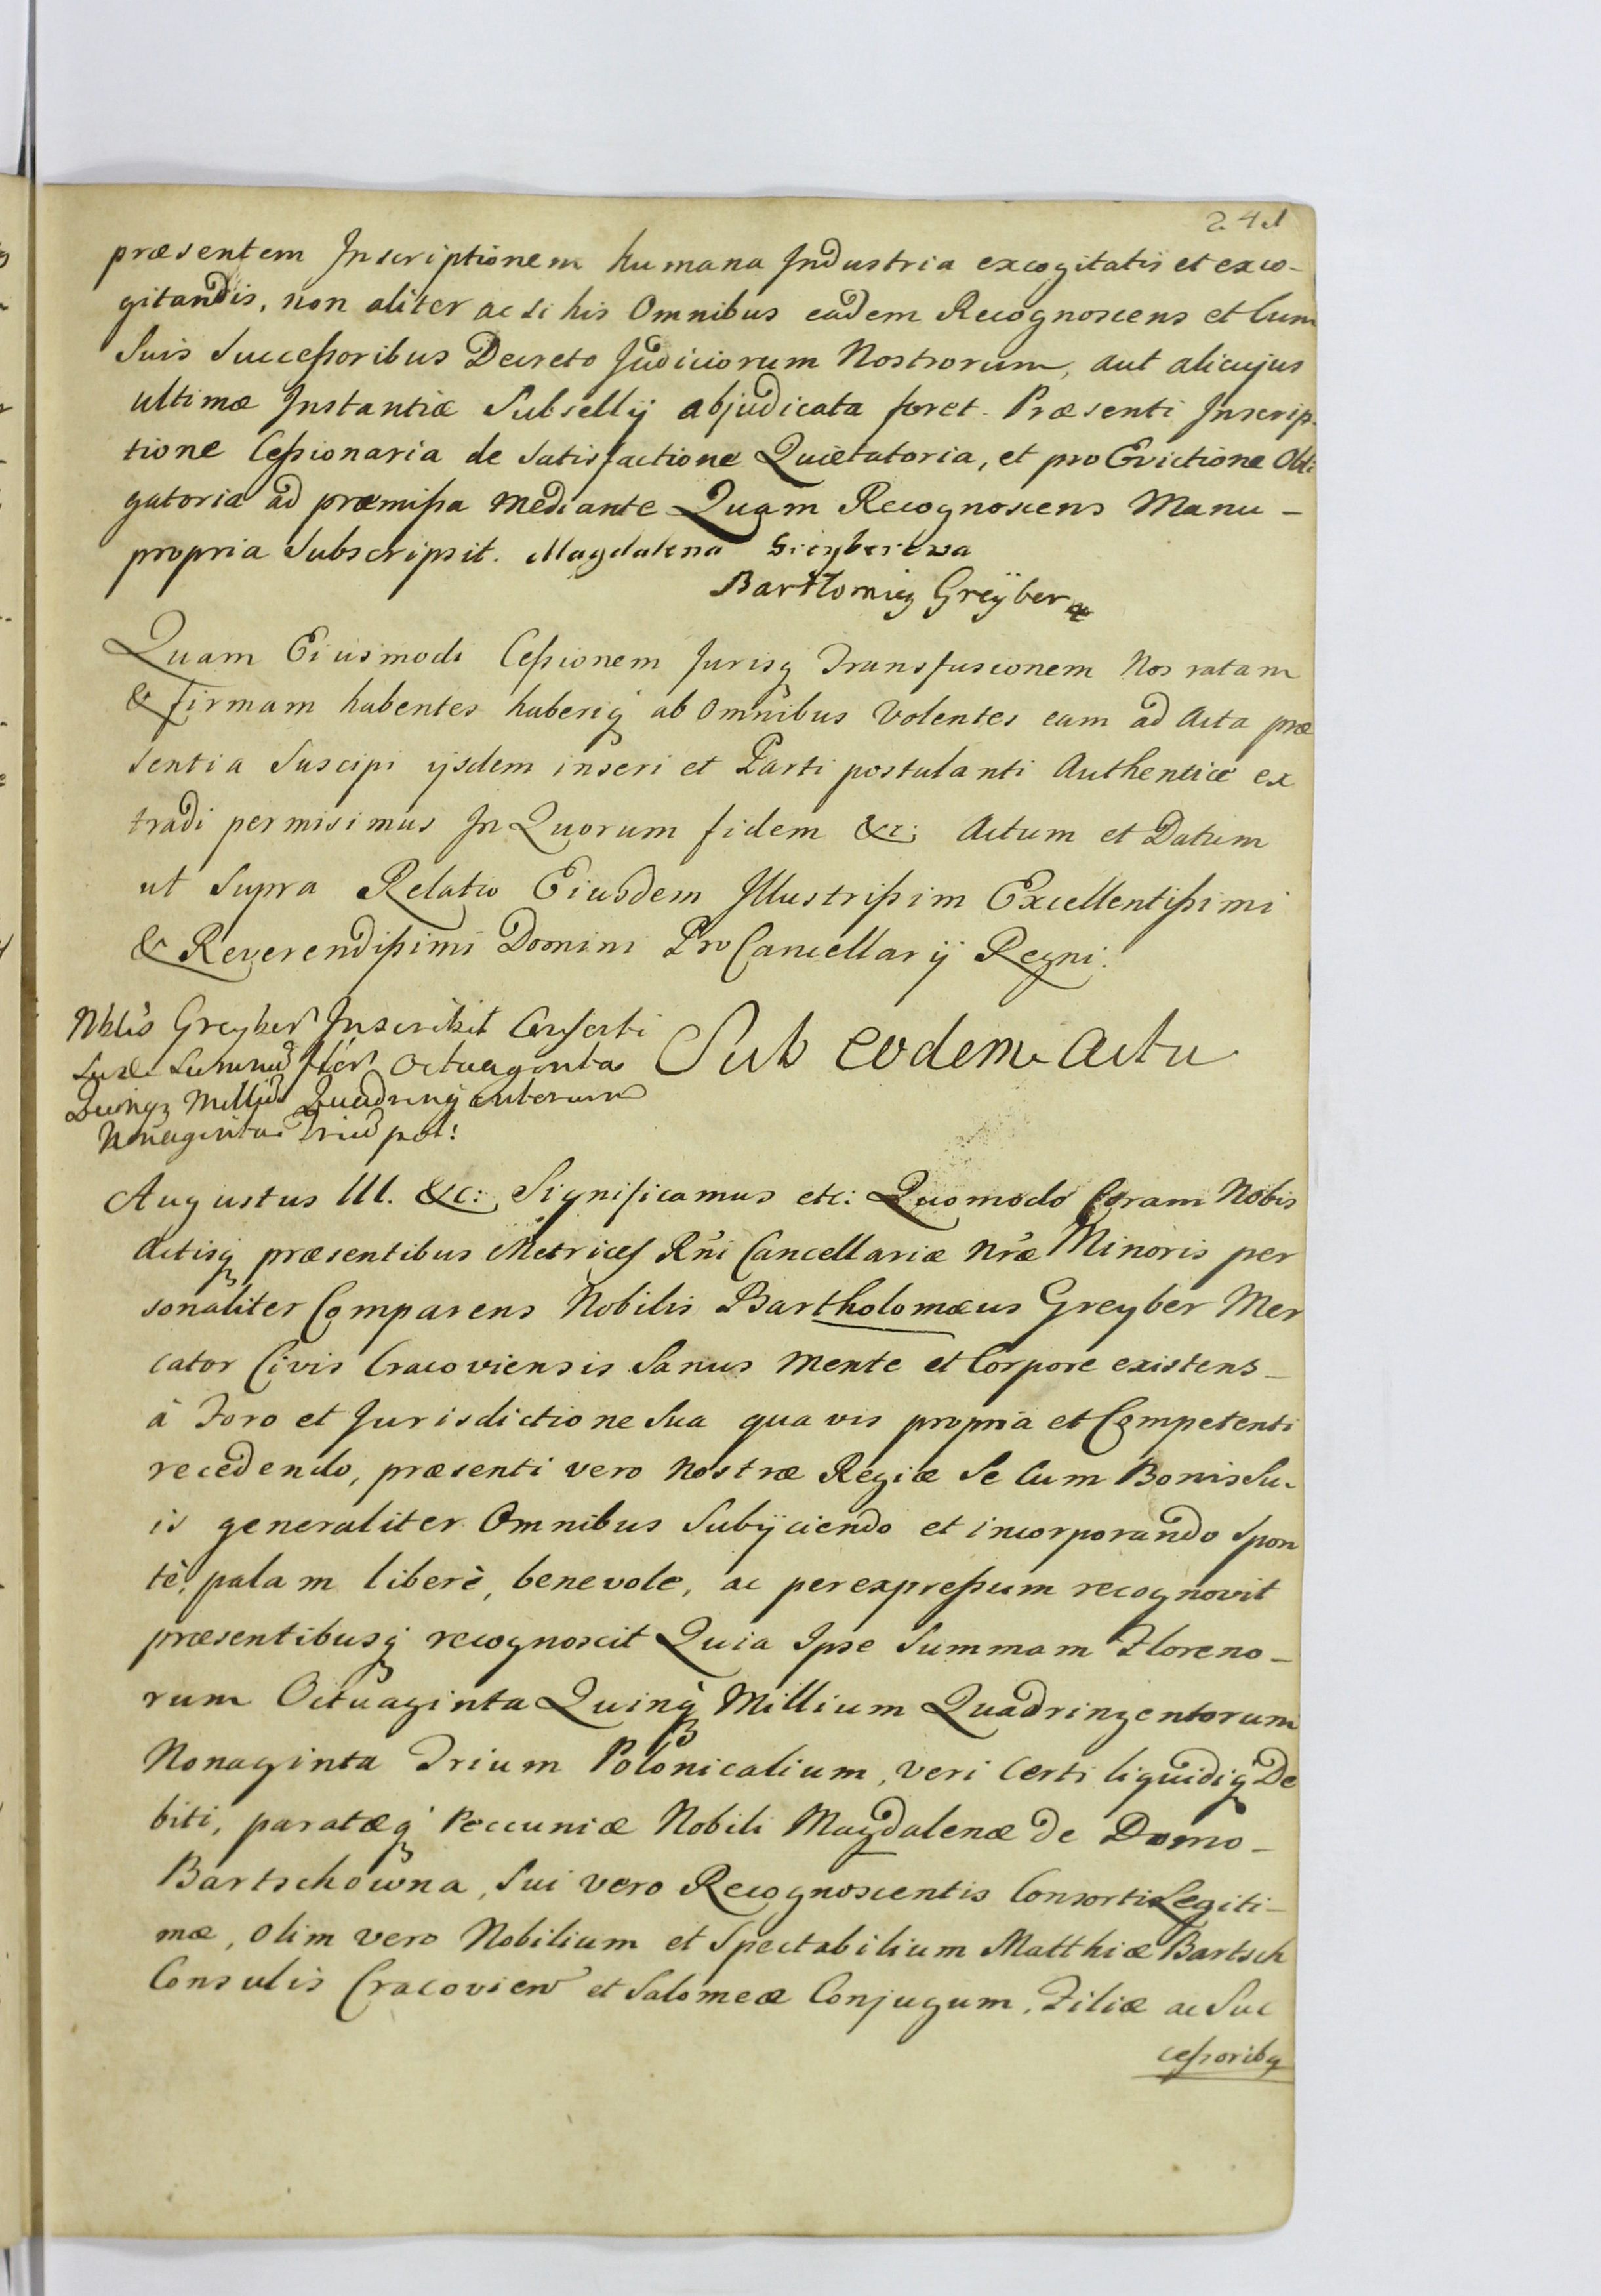 241
præsentem Inscriptionem humana Industria excogitatis et exco-
gitandis, non aliter ac si his Omnibus eadem Recognoscens et Cum
Suis Successoribus Decreto Judiciorum Nostrorum, aut alicujus
ultimæ Instantiæ Subsellij abjudicata foret. Præsenti Inscrip-
tione Cessionaria de Satisfactione Quietatoria, et pro Evictione Obli
gatoria ad præmissa mediante Quam Recognoscens Manu -
propria Subscripsit. Magdalena Greyberowa
Bartlomiey Greÿber
Quam Eiusmodi Cessionem Jurisq Transfusionem Nos ratam
& firmam habentes haberiq ab Omnibus Volentes eam ad Acta præ
sentia Suscipi ijsdem inseri et Parti postulanti Authenticè ex
tradi permisimus In Quorum fidem &c: Actum et Datum
ut Supra Relatio Eiusdem Illustrissim Excellentissimi
& Reverendissimi Domini ProCancellarij Regni.
Nblis Greyber Inscribit Consorti
Suæ Summã flor Octuaginta
Quinq Milliũ Quadringentorum
Nonaginta Triũ pol:
Sub eodem Actu
Augustus III. &c: Significamus etc: Quomodo Coram Nobis
Actisq præsentibus Metrices Rñi Cancellariæ Nræ Minoris per
sonaliter Comparens Nobilis Bartholomæus Greyber Mer
cator Civis Cracoviensis Sanus Mente et Corpore existens -
à Foro et Jurisdictione Sua quavis propria et Competenti
recedendo, præsenti vero Nostræ Regiæ Se Cum Bonis Su-
is generaliter Omnibus Subijciendo et incorporando Spon
tè, palam liberè, benevole, ac per expressum recognovit
præsentibusq recognoscit Quia Ipse Summam Floreno -
rum Octuaginta Quinq Millium Quadringentorum
Nonaginta Trium Polonicalium, Veri Certi liquidiq De
biti, paratæq Peccuniæ Nobili Magdalenæ de Domo -
Bartschowna, Sui vero Recognoscentis Consorti Legiti -
mæ, Olim vero Nobilium et Spectabilium Matthiæ Bartsch
Consulis Cracovien et Salomeæ Conjugum, Filiæ ac Suc
cessoribq